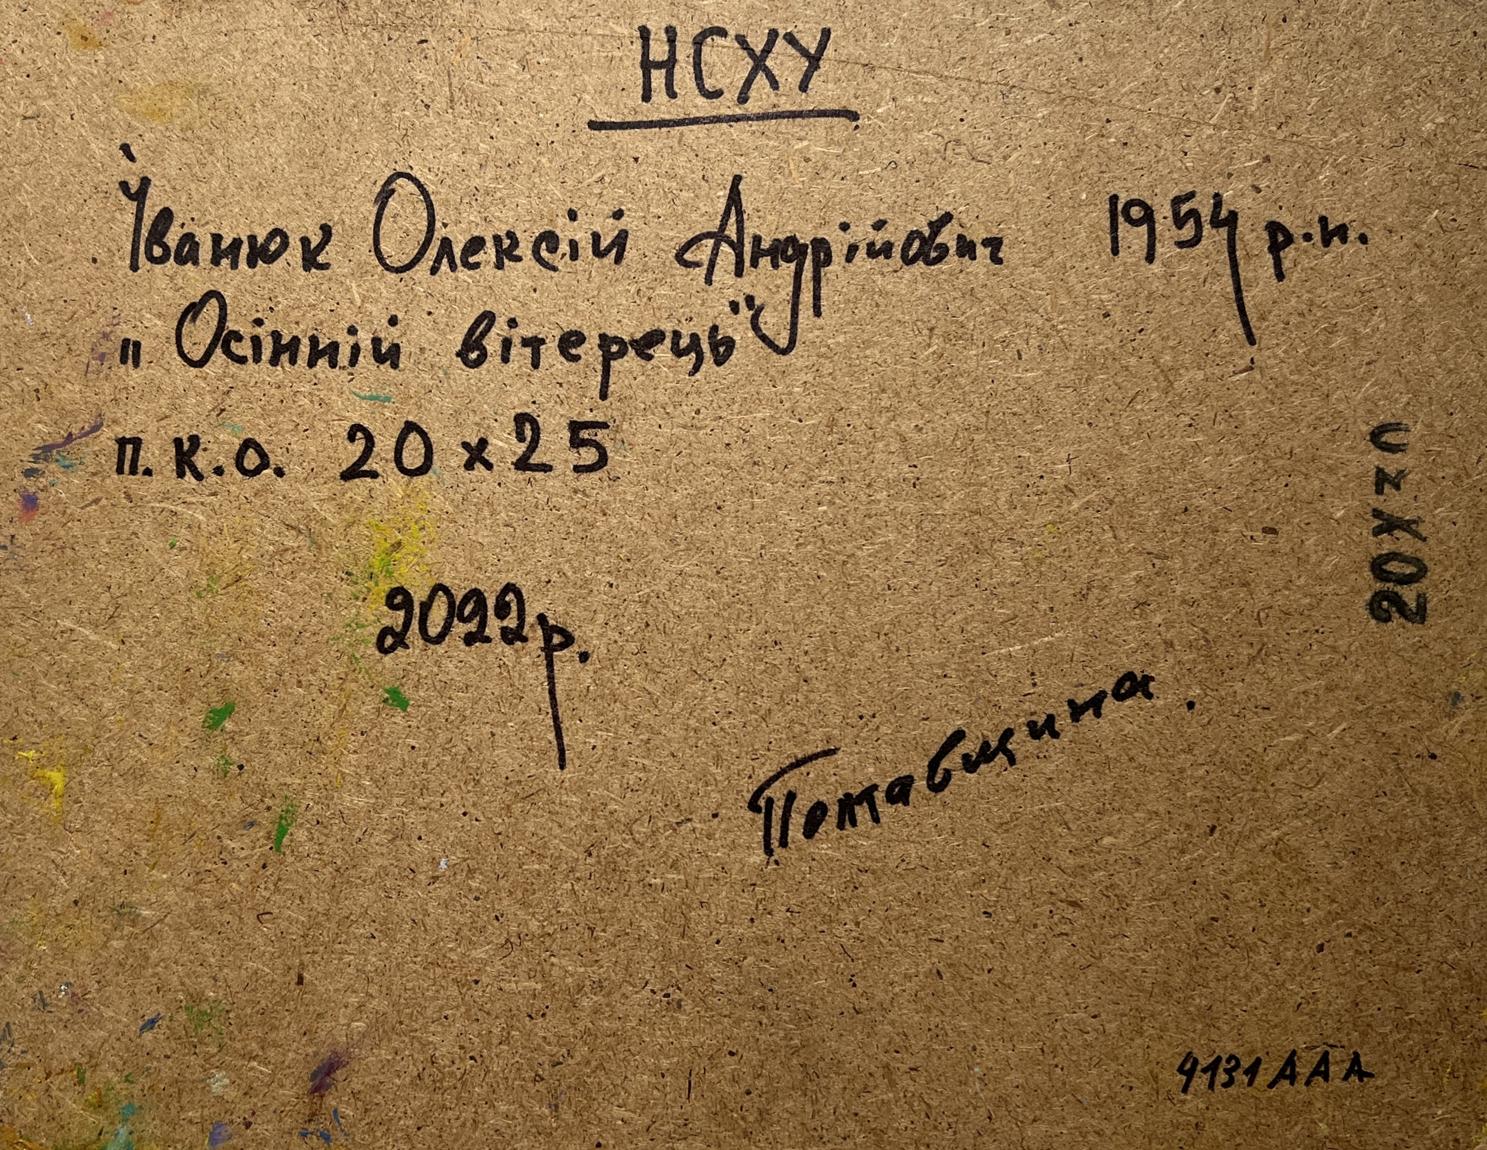 НСХУ
Іванюк Олексій Андрійович 1954 р.н.
„Осінній вітерець"
п.к.о. 20х25
2022р.
Полтавщина.
9131ААА